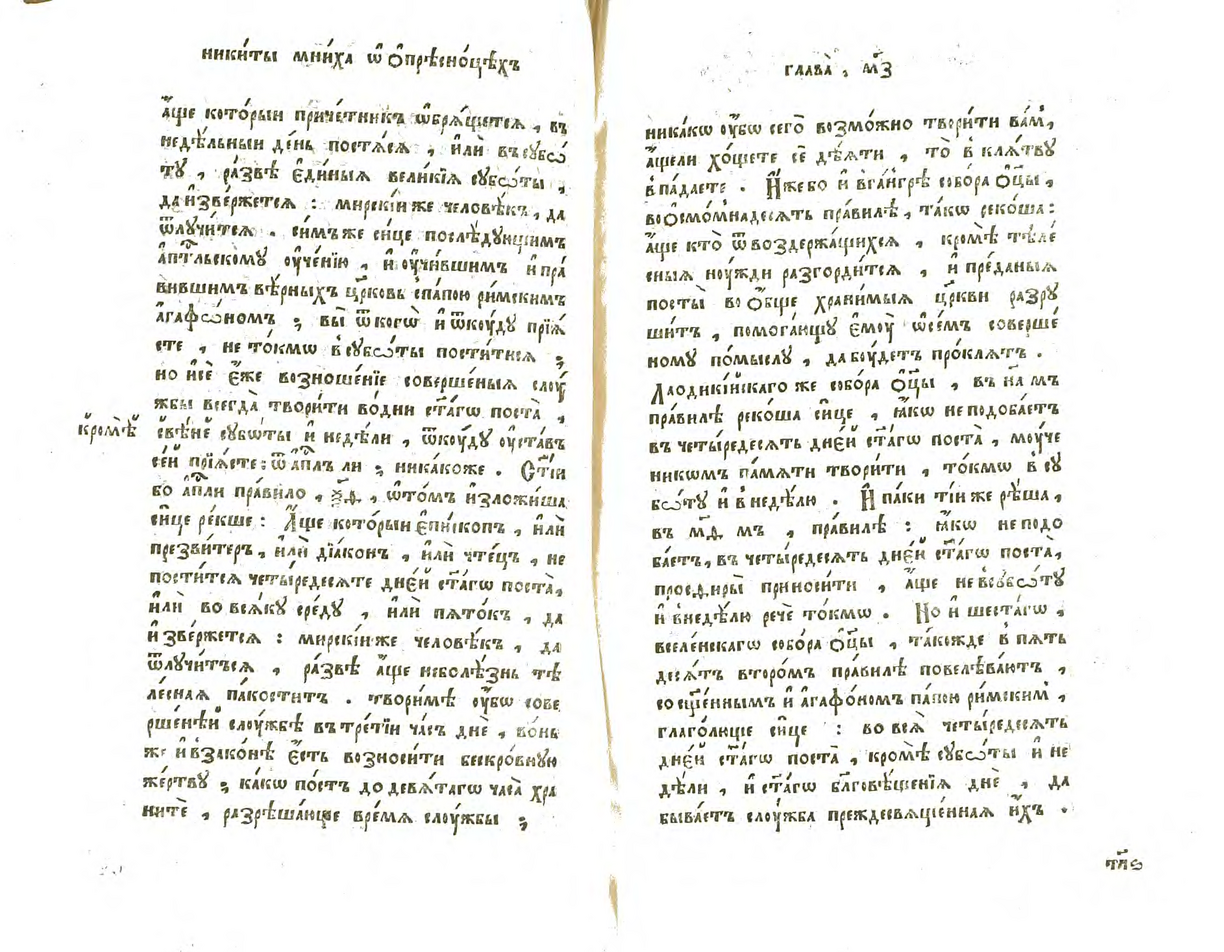 ники́ты мни́ха ѡ҆ ѻ҆прѣсно́цѣхъ
а҆́ще кото́рыи приче́тникъ ѡ҆бря́щется , въ
недѣ́льныи де́нь постя́ся , и҆лѝ въ субѡ́
ту , ра́звѣ є҆ди́ныя вели́кїѧ субѡ́ты ,
да и҆зве́ржется : мирскі́и же человѣ́къ , да
ѿлу́чится . си́мъ же си́це послѣ́дующимъ
а҆пⷭ҇льскому оу҆че́нїю , и҆ оу҆чи́вшимъ и҆ пра́
вившимъ вѣ́рныхъ цр҃ковь спа́пою ри́мскимъ
а҆гафѡ́номъ ; вы̀ ѿ когѡ̀ и҆ ѿкоу́ду прїѧ́
сте , не то́кмѡ в субѡ́ты пости́тися ;
но и҆ сѐ є҆́же возноше́нїе соверше́ныѧ слоу́
жбы всегда̀ твори́ти во дни ст҃а́гѡ поста̀ ,
кромѣ̀
свѣ́не субѡ́ты и҆ недѣ́ли , ѿкоу́ду оу҆ста́въ
се́й прїѧ́сте : ѿ а҆пⷭ҇лъ ли ; никако́же . Ст҃і́и
бо а҆пⷭ҇ли пра́вило , ѯ҃ѳ , ѡ҆ то́мъ и҆зложи́ша
си́це ре́кше : А҆́ще кото́рыи є҆пи́скопъ , и҆лѝ
презви́теръ , и҆лѝ дїа́конъ , и҆лѝ чте́цъ , не
пости́тся четы́редесяте дне́й ст҃а́гѡ поста̀ ,
и҆лѝ во вся́ку сре́ду , и҆лѝ пято́къ , да
и҆зве́ржется : мирскі́и же человѣ́къ , да
ѿлу́читъся , ра́звѣ а҆́ще неболѣ́знь тѣ
ле́сная па́коститъ . твори́мѣ оу҆́бѡ сове
рше́нѣй слоу́жбѣ въ тре́тїи ча́съ днѐ , во́нь
же и҆ в зако́нѣ є҆́сть возноси́ти бескро́вную
же́ртву ; ка́кѡ по́стъ до девя́тагѡ часа̀ хра
ни́те , разрѣша́юще вре́мя слоу́жбы ;
глава̀ , м҃з
ника́кѡ оу҆́бѡ сего̀ возмо́жно твори́ти ва́м ,
а҆́ще ли хо́щете сѐ дѣ́яти , то̀ в кля́тву
впа́даете . И҆́же бо и҆ в га́нгрѣ собо́ра ѻ҆ц҃ы̀ ,
во ѻ҆смо́мнадесять пра́вилѣ , та́кѡ реко́ша :
а҆́ще кто̀ ѿ воздержа́щихся , кромѣ̀ тѣле́
сныя ноу́жди разгорди́тся , и҆ пре́даныя
посты̀ во ѻ҆́бще храни́мыя цр҃кви разру
ши́тъ , помога́ющу є҆моу̀ ѡ҆ все́мъ соверше́
ному по́мыслу , да боу́детъ про́клятъ .
Лаодикі́йскаго же собо́ра ѻ҆ц҃ы̀ , въ н҃а мъ
пра́вилѣ реко́ша си́це , ꙗ҆́кѡ не подоба́етъ
въ четы́редесять дне́й ст҃а́гѡ поста̀ , моу́че
никѡмъ па́мяти твори́ти , то́кмѡ в су
бѡ́ту и҆ в недѣ́лю . И҆ па́ки ті́и же рѣ́ша ,
въ м҃ѳ мъ , пра́вилѣ : ꙗ҆́кѡ не подо
ба́етъ , въ четы́редесять дне́й ст҃а́гѡ поста̀ ,
просѳиры̀ приноси́ти , а҆́ще не в субѡ́ту
и҆ в недѣ́лю речѐ то́кмѡ . Но и҆ шеста́гѡ ,
вселе́нскагѡ собо́ра ѻ҆ц҃ы̀ , та́кожде в пять
деся́тъ второ́мъ пра́вилѣ повелѣва́ютъ ,
со сщ҃е́ннымъ и҆ а҆гафо́номъ па́пою ри́мскимъ ,
глаго́люще си́це : во вся̀ четы́редесять
дне́й ст҃а́гѡ поста̀ , кромѣ̀ субѡ́ты и҆ не
дѣ́ли , и҆ ст҃а́гѡ бл҃говѣ́щенїѧ днѐ , да
быва́етъ слоу́жба преждесвяще́нная и҆́хъ .